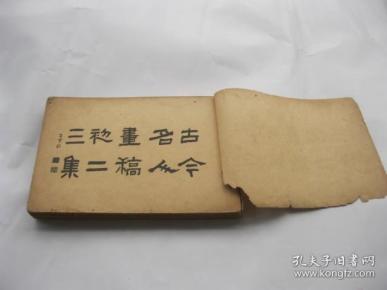 古今
名人
畫稿
初二
三集
孔夫子旧书网